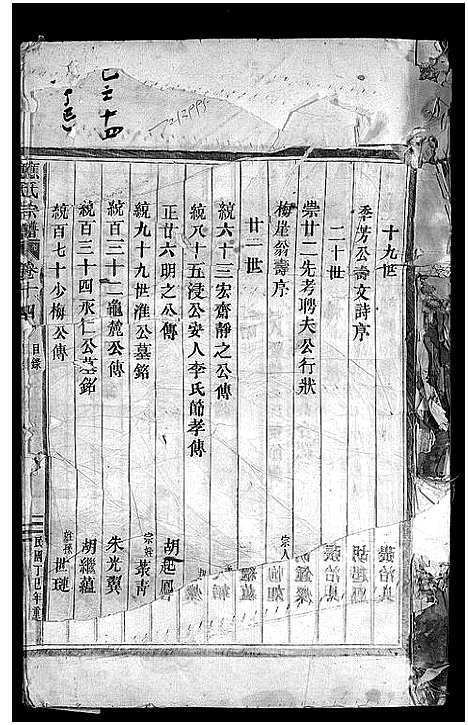 十九世
季芳公壽文詩序
二十世
崇廿二先考聘夫公行狀
梅崖翁壽序
宗人
廿一世
統六十三宏齋靜之公傳
統八十五浸公安人李氏節孝傳
正廿六明之公傳 胡起鳳
統九十九世淮公墓銘 宗姪叢青
統百三十二龜麓公傳 朱光翼
統百三十四永仁公墓銘 胡繼蘊
統百七十少梅公傳 姪孫世璉
氏宗譜 卷十四 目錄 民國丁巳年重
十四
丁巳